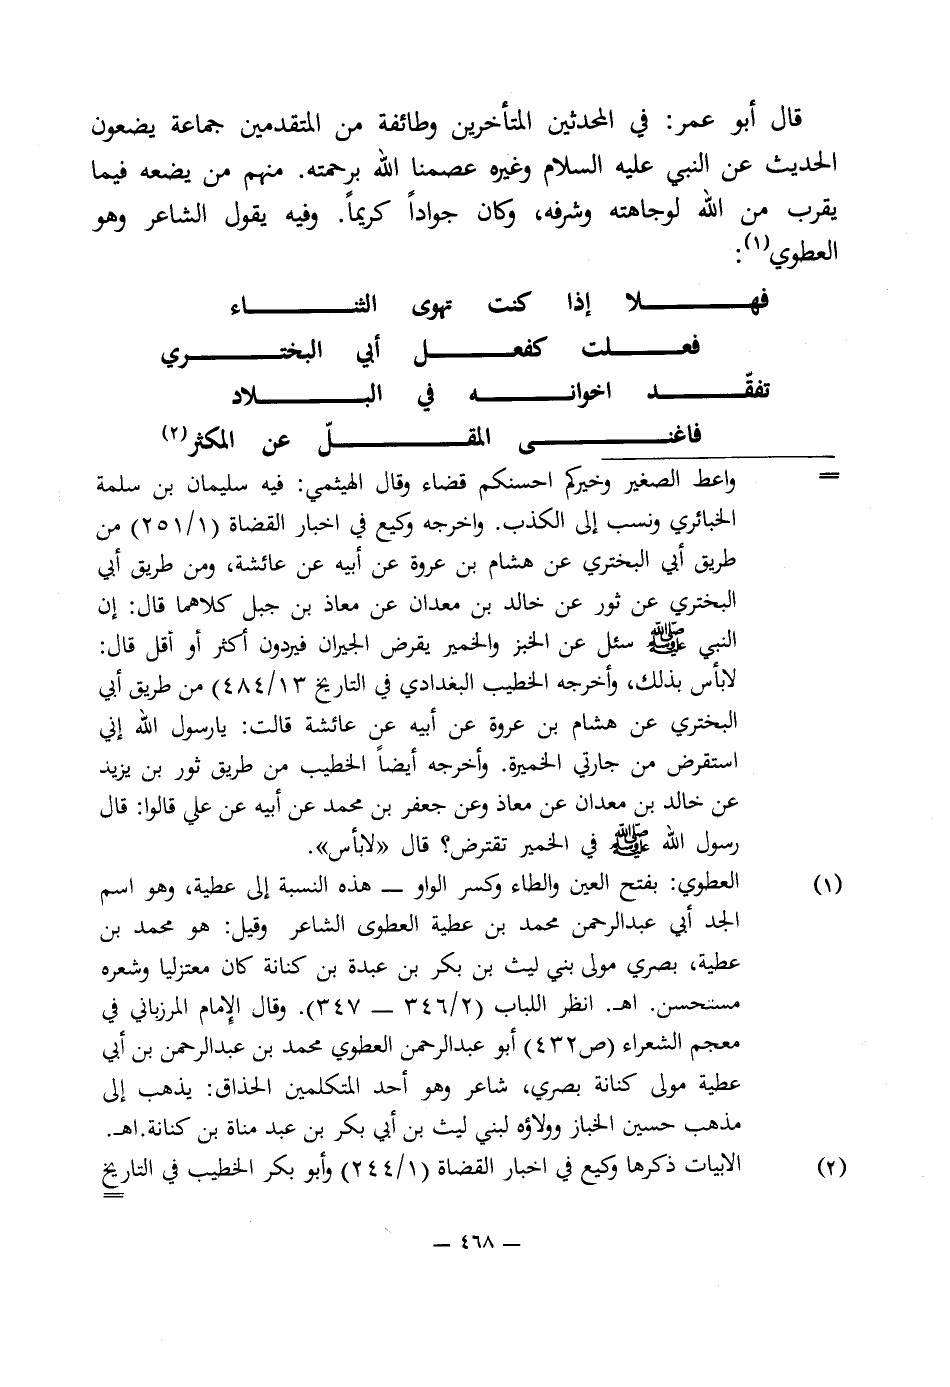 قال أبو عمر: في المحدثين المتأخرين وطائفة من المتقدمين جماعة يضعون
الحديث عن النبي عليه السلام وغيره عصمنا الله برحمته. منهم من يضعه فيما
يقرب من الله لوجاهته وشرفه، وكان جواداً كريماً. وفيه يقول الشاعر وهو
العطوي(١):
فهــلا إذا كنت تهوى الثنــاء
فعــلت كفعــل أبي البختــري
تفقّــد اخوانــه في البــلاد
فاغنــى المقــلّ عن المكثر(٢)
= واعط الصغير وخيركم احسنكم قضاء وقال الهيثمي: فيه سليمان بن سلمة
الخبائري ونسب إلى الكذب. واخرجه وكيع في اخبار القضاة (٢٥١/١) من
طريق أبي البختري عن هشام بن عروة عن أبيه عن عائشة، ومن طريق أبي
البختري عن ثور عن خالد بن معدان عن معاذ بن جبل كلاهما قال: إن
النبي ﷺ سئل عن الخبز والخمير يقرض الجيران فيردون أكثر أو أقل قال:
لابأس بذلك، وأخرجه الخطيب البغدادي في التاريخ ٤٨٤/١٣) من طريق أبي
البختري عن هشام بن عروة عن أبيه عن عائشة قالت: يارسول الله إني
استقرض من جارتي الخميرة. وأخرجه أيضاً الخطيب من طريق ثور بن يزيد
عن خالد بن معدان عن معاذ وعن جعفر بن محمد عن أبيه عن علي قالوا: قال
رسول الله ﷺ في الخمير تقترض؟ قال «لابأس».
(١) العطوي: بفتح العين والطاء وكسر الواو — هذه النسبة إلى عطية، وهو اسم
الجد أبي عبدالرحمن محمد بن عطية العطوى الشاعر وقيل: هو محمد بن
عطية، بصري مولى بني ليث بن بكر بن عبدة بن كنانة كان معتزليا وشعره
مستحسن. اهـ. انظر اللباب (٣٤٦/٢ — ٣٤٧). وقال الإمام المرزباني في
معجم الشعراء (ص٤٣٢) أبو عبدالرحمن العطوي محمد بن عبدالرحمن بن أبي
عطية مولى كنانة بصري، شاعر وهو أحد المتكلمين الحذاق: يذهب إلى
مذهب حسين الخباز وولاؤه لبني ليث بن أبي بكر بن عبد مناة بن كنانة.اهـ.
(٢) الابيات ذكرها وكيع في اخبار القضاة (٢٤٤/١) وأبو بكر الخطيب في التاريخ
=
— ٤٦٨ —